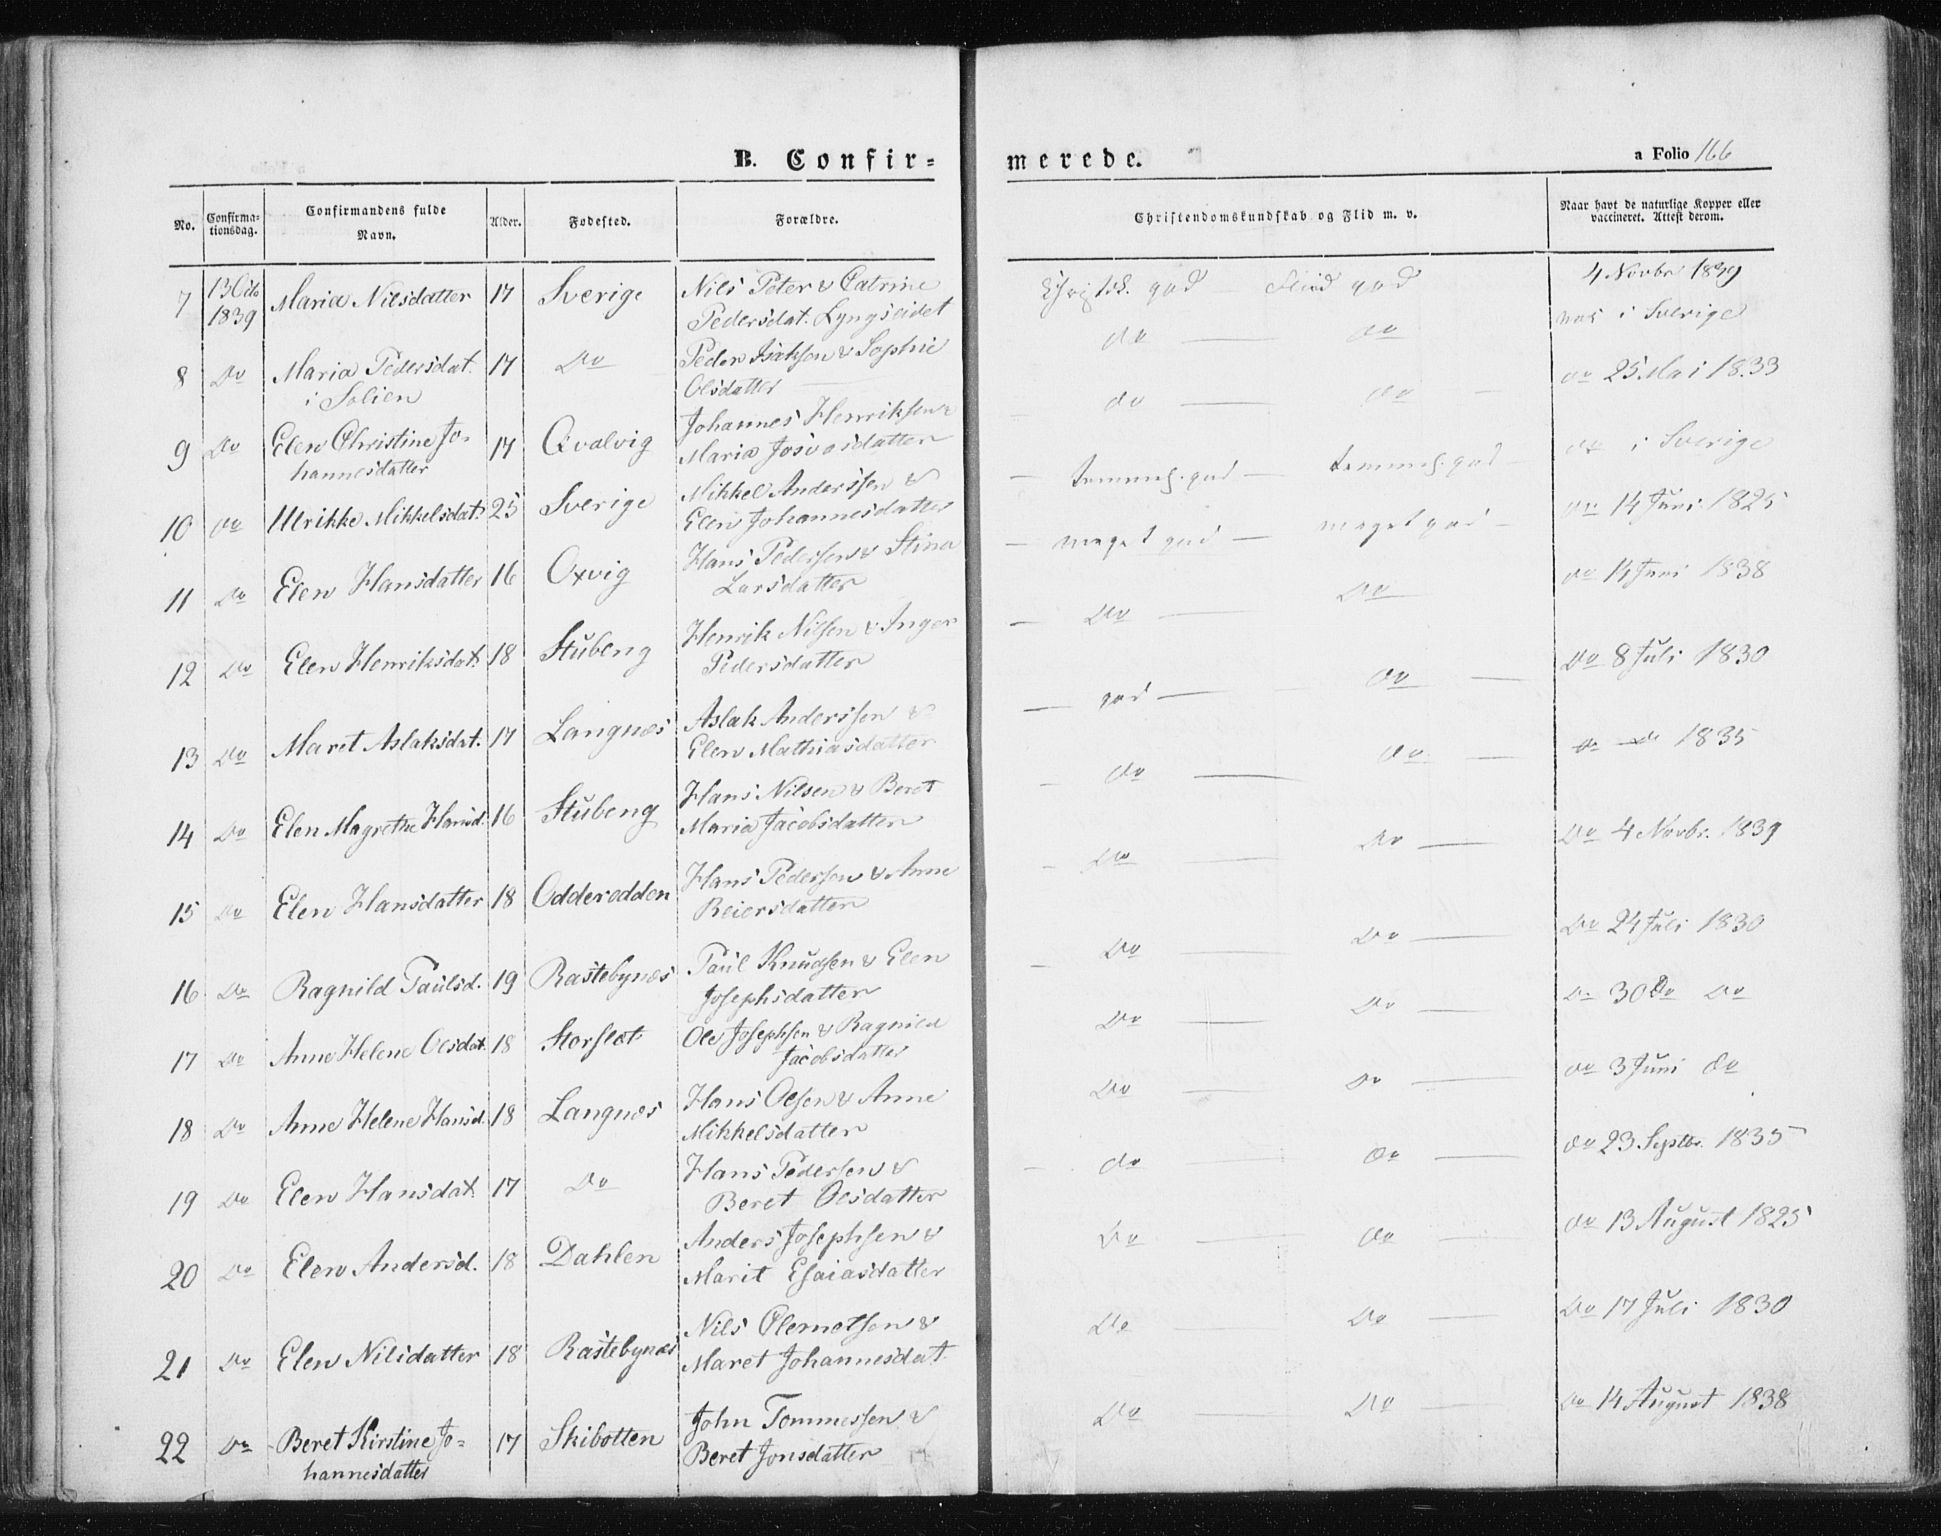 B. Confir=
merede.
a Folio 166
No.
Confirma-
tionsdag.
Confirmandens fulde
Navn.
Alder.
Fødested.
Forældre.
Christendomskundskab og Flid m. v.
Naar havt de naturlige Kopper eller
vaccineret. Attest derom.
7 13 Octo 1839 Maria Nilsdatter 17 Sverige Nils Peter & Catrine
Pedersdat. Lyngseidet
god — Fliid god
4 Novbr 1839
8 Do Maria Pedersdat. 17 Do Peder Isaksen & Sophie
i Solien Olsdatter
do — do
vac i Sverige
9 Do Elen Christine Jo- 17 Qvalvig Johannes Henriksen &
hannesdatter Maria Josvasdatter
do — do
do 25 Mai 1833
10 Do Ulrikke Mikkelsdat. 25 Sverige Mikkel Anderssen &
Elen Johannesdatter
temmel. god — temmel. god
do i Sverige
11 Do Elen Hansdatter 16 Oxvig Hans Pederssen & Stina
Larsdatter
meget god — meget god
do 14 Juni 1825
12 Do Elen Henriksdat. 18 Stubeng Henrik Nilsen & Inger
Pedersdatter
Do — Do
do 14 Juni 1838
13 Do Maret Aslaksdat. 17 Langnæs Aslak Anderssen &
Elen Mathiasdatter
god — do
Do 8 Juli 1830
14 Do Elen Magrethe Hansd. 16 Stubeng Hans Nilsen & Beret
Maria Jacobsdatter
do — do
do do 1835
15 Do Elen Hansdatter 18 Odderodden Hans Pederssen & Anne
Beiersdatter
Do — Do
Do 4 Novbr. 1839
16 Do Ragnild Paulsd. 19 Rastebynæs Paul Knudsen & Elen
Josephsdatter
Do — Do
Do 24 Juli 1830
17 Do Anne Helene Olsdat. 18 Storslet Ole Josephsen & Ragnild
Jacobsdatter
Do — Do
Do 30 Do Do
18 Do Anne Helene Hansd. 18 Langnæs Hans Olsen & Anne
Mikkelsdatter
Do — Do
do 3 Juni do
19 Do Elen Hansdat. 17 Do Hans Pedersen &
Beret Olsdatter
do — do
do 23 Septbr. 1835
20 Do Elen Andersd. 18 Dahlen Anders Josephsen &
Marit Esaiasdatter
Do — do
do 13 August 1825
21 Do Elen Nilsdatter 18 Rastebynæs Nils Clemetsen &
Maret Johannesdat.
Do — Do
Do 17 Juli 1830
22 Do Beret Kirstine Jo= 17 Skibotten John Tommessen &
hannesdatter Beret Jonsdatter
Do — Do
Do 14 August 1838